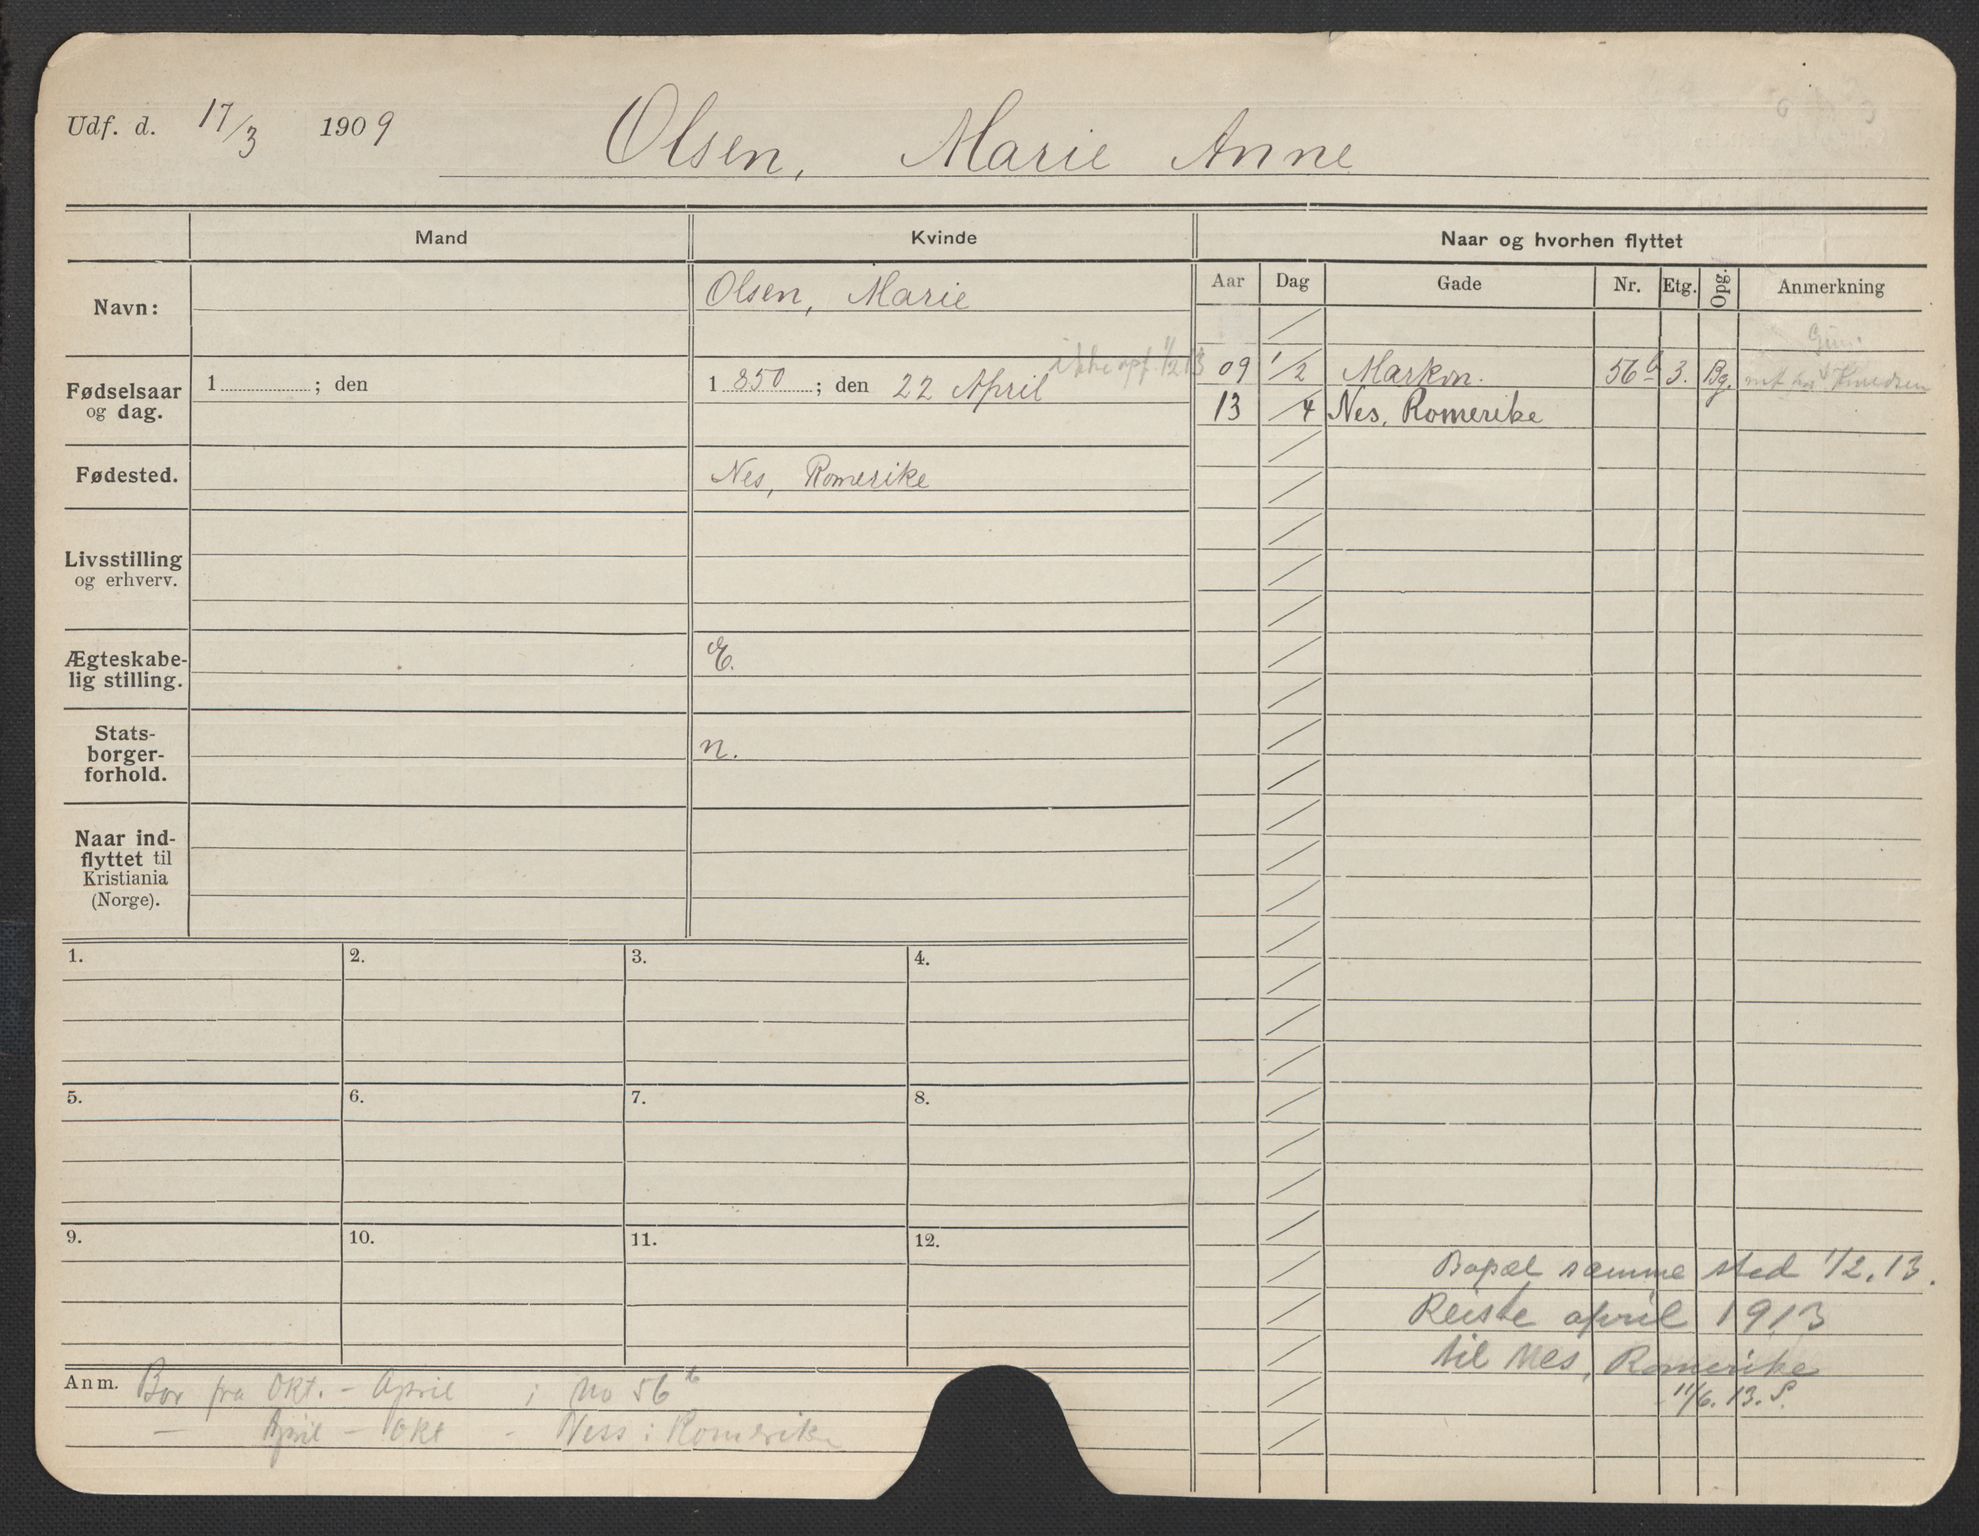 Udf. d. 17/3 1909 Olsen, Marie Anne
Mand Kvinde Naar og hvorhen flyttet
Aar Dag Gade Nr. Etg. Opg. Anmerkning
Navn: Olsen, Marie
Fødselsaar og dag. 1 ; den 1 850 ; den 22 April ikke opf. 1/2 13
09 1/2 Markvn. 56b 3. Bg. Knudsen
13 /4 Nes, Romerike
Fødested. Nes, Romerike
Livsstilling
og erhverv.
Ægteskabe-
lig stilling. E.
Stats-
borger-
forhold. n.
Naar ind-
flyttet til
Kristiania
(Norge).
1. 2. 3. 4.
5. 6. 7. 8.
9. 10. 11. 12.
Bopæl samme sted 1/2.13.
Reiste april 1913
til Nes, Romerike
11/6.13.S.
Anm. Bor fra Okt. - April i No 56b
— April - Okt - Ness i Romerike